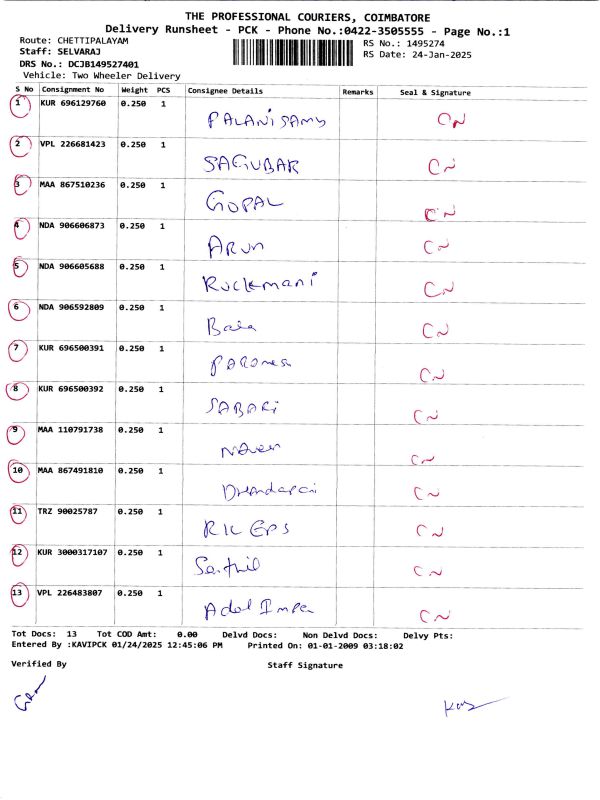 THE PROFESSIONAL COURIERS, COIMBATORE
Delivery Runsheet - PCK - Phone No.:0422-3505555 - Page No.:1
Route: CHETTIPALAYAM RS No.: 1495274
Staff: SELVARAJ RS Date: 24-Jan-2025
DRS No.: DCJB149527401
Vehicle: Two Wheeler Delivery
S No Consignment No Weight PCS Consignee Details Remarks Seal & Signature
1 KUR 696129760 0.250 1
PALANISAMY CN
2 VPL 226681423 0.250 1
SAGUBAR CN
3 MAA 867510236 0.250 1
GOPAL CN
4 NDA 906606873 0.250 1
ARUN CN
5 NDA 906605688 0.250 1
Ruckmani CN
6 NDA 906592809 0.250 1
Bala CN
7 KUR 696500391 0.250 1
CN
8 KUR 696500392 0.250 1
SABARI CN
9 MAA 110791738 0.250 1
Naveen CN
10 MAA 867491810 0.250 1
CN
11 TRZ 90025787 0.250 1
CN
12 KUR 3000317107 0.250 1
CN
13 VPL 226483807 0.250 1
CN
Tot Docs: 13 Tot COD Amt: 0.00 Delvd Docs: Non Delvd Docs: Delvy Pts:
Entered By :KAVIPCK 01/24/2025 12:45:06 PM Printed On: 01-01-2009 03:18:02
Verified By Staff Signature